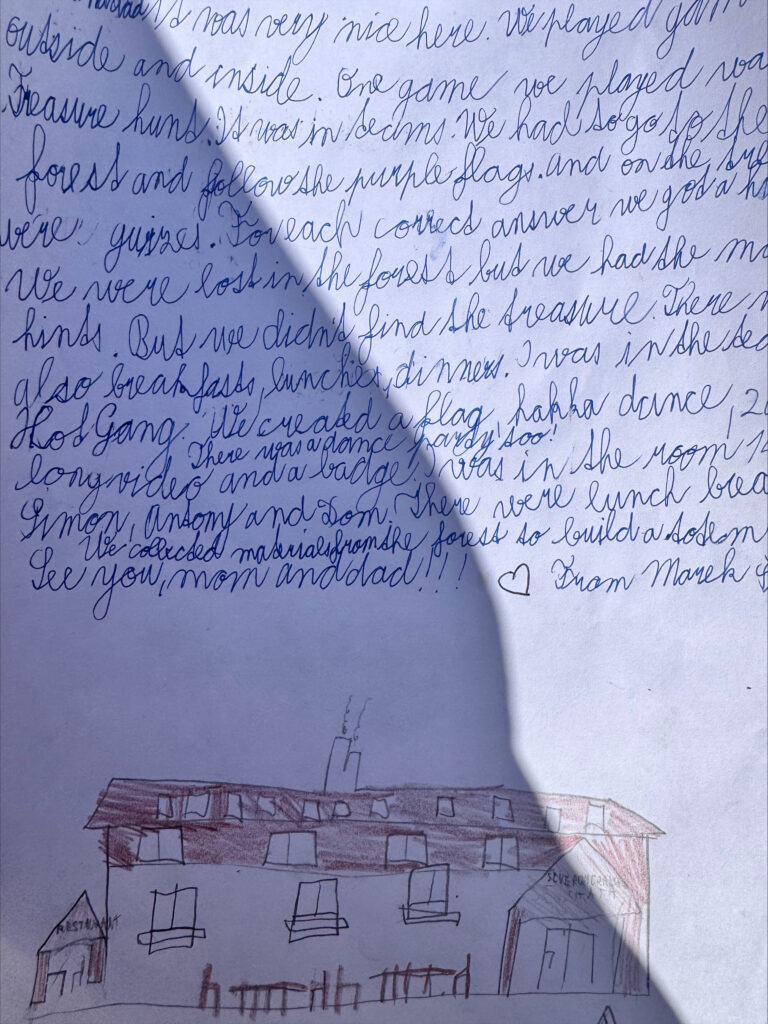 It was very nice here. We played gam
outside and inside. One game we played wa
Treasure hunt. It was in teams. We had to go to the
forest and follow the purple flags. and on the tre
were quizzes. For each correct answer we got a hi
We were lost in the forest but we had the mo
hints. But we didn't find the treasure. There w
also breakfasts, lunches, dinners. I was in the tea
HotGang. We created a flag, hakka dance, 2
There was a dance party too!
long video and a badge! I was in the room 1
Simon, Antony and Dom. There were lunch brea
We collected materials from the forest to build a totem
See you, mom and dad!!! ♡ From Marek
RESTAURANT